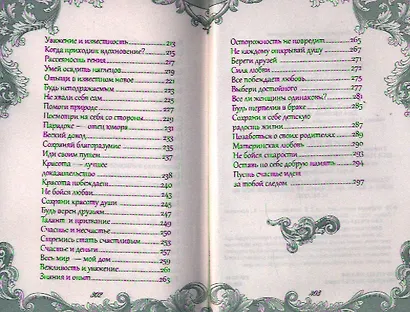 Уважение и известность 213
Когда приходит вдохновение? 215
Рассеянность гения 217
Умей осадить наглецов 219
Отыщи в известном новое 221
Будь неподражаемым 223
Не хвали себя сам 225
Помоги природе 227
Посмотри на себя со стороны 229
Парадокс — отец юмора 231
Веский довод 233
Сохраняй благоразумие 235
Иди своим путем 237
Красота — лучшее
доказательство 238
Красота побеждает 240
Не бойся любви 243
Сохрани красоту души 245
Будь верен друзьям 247
Талант и призвание 249
Счастье и несчастье 250
Стремись стать счастливым 253
Счастье и деньги 257
Весь мир — мой дом 259
Вежливость и уважение 261
Знания и опыт 263
302
Осторожность не повредит 265
Не каждому открывай душу 267
Береги друзей 271
Сила любви 272
Все побеждает любовь 275
Выбери достойного 277
Все ли женщины одинаковы? 281
Будь терпелив в браке 285
Сохрани в себе детскую
радость жизни 287
Позаботься о своих родителях 289
Материнская любовь 290
Не бойся старости 293
Оставь по себе добрую память 294
Пусть счастье идет
за тобой следом 297
303